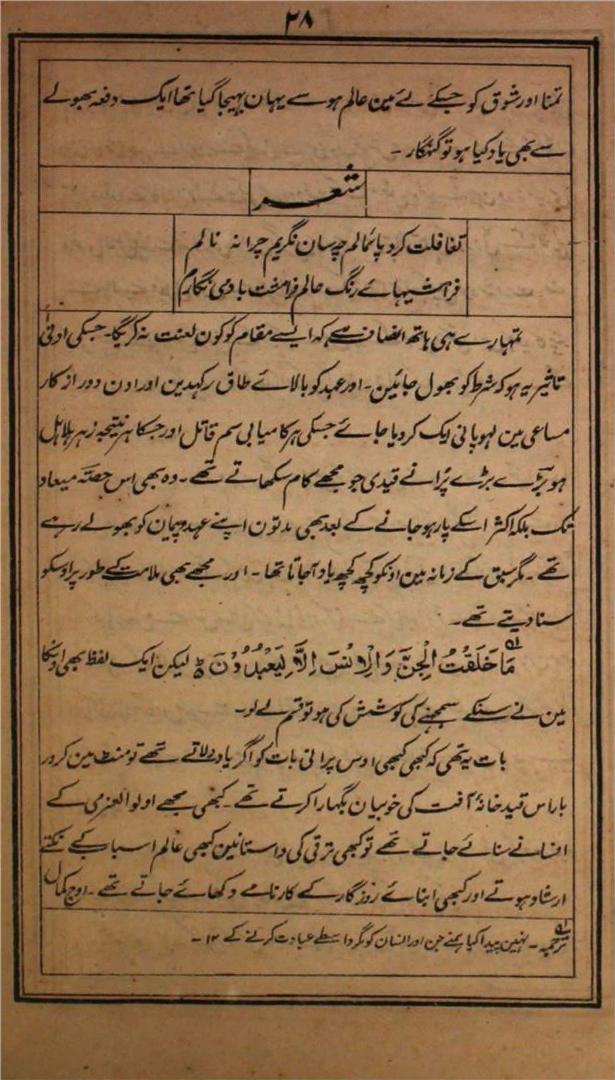 ۲۸
تمنا اور شوق کو جسکے لئے مین عالم ہو سے یہان بہیجا گیا تھا ایک دفعہ بھولے
سے بھی یاد کیا ہو تو گنہگار ۔
شعر
تغافلت کرد پائمالم چہ سان نگریم چرا نہ نالم
فرامشیہائے رنگ عالم فراہشت یادی نگارم
تمہارے ہی ہاتھ انصاف ہے کہ ایسے مقام کو کون لعنت نہ کریگا ۔ جسکی ادنیٰ
تاثیر یہ ہو کہ شرط کو بھول جائین ۔ اور عہد کو بالائے طاق رکہدین اور ادن دور از کار
مساعی مین لہو پانی ایک کر دیا جائے جسکی ہر کامیابی سم قاتل اور جسکا ہر نتیجہ زہر ہلاہل
ہو بڑے بڑے پُرانے قیدی جو مجھے کام سکھاتے تھے ۔ وہ بھی اس حصّہ میعاد
تک بلکہ اکثر اسکے پار ہو جانے کے بعد بھی مدتون اپنے عہد و پیمان کو بھولے رہے
تھے ۔ مگر سبق کے زمانہ مین اونکو کچھ کچھ یاد آجاتا تھا ۔ اور مجھے بھی ملامت کے طور پر اوسکو
سنا دیتے تھے ۔
مَا خَلَقْتُ الْجِنَّ وَالْاِنْسَ اِلَّا لِيَعْبُدُوْنَ ط لیکن ایک لفظ بھی اوسکا
مین نے سنکے سمجہنے کی کوشش کی ہو تو قسم لے لو ۔
بات یہ تھی کہ کبھی کبھی اوس پرانی بات کو اگر یاد دلاتے تھے تو منٹ مین کرور
بار اس قید خانۂ آفت کی خوبیان بگہارا کرتے تھے ۔ کبھی مجھے اولو العزمی کے
افسانے سنائے جاتے تھے تو کبھی ترقی کی داستانین کبھی عالم اسباب کے نکتے
ارشاد ہوتے اور کبھی ابنائے روزگار کے کارنامے دکھائے جاتے تھے ۔ اوج کمال
ترجمہ ۔ نہین پیدا کیا ہمنے جن اور انسان کو مگر واسطے عبادت کرنے کے ۱۲ ۔